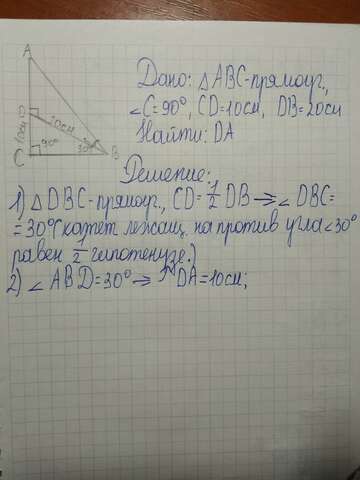 A
D
20см
10см
90°
30°
C
B
Дано: △ABC-прямоуг.,
∠C=90°, CD=10см, DB=20см
Найти: DA
Решение:
1) △DBC-прямоуг., CD=1/2 DB ⇒ ∠DBC=
=30°(катет лежащ. на против угла∠30°
равен 1/2 гипотенузе.)
2) ∠ABD=30° ⇒ DA=10см;